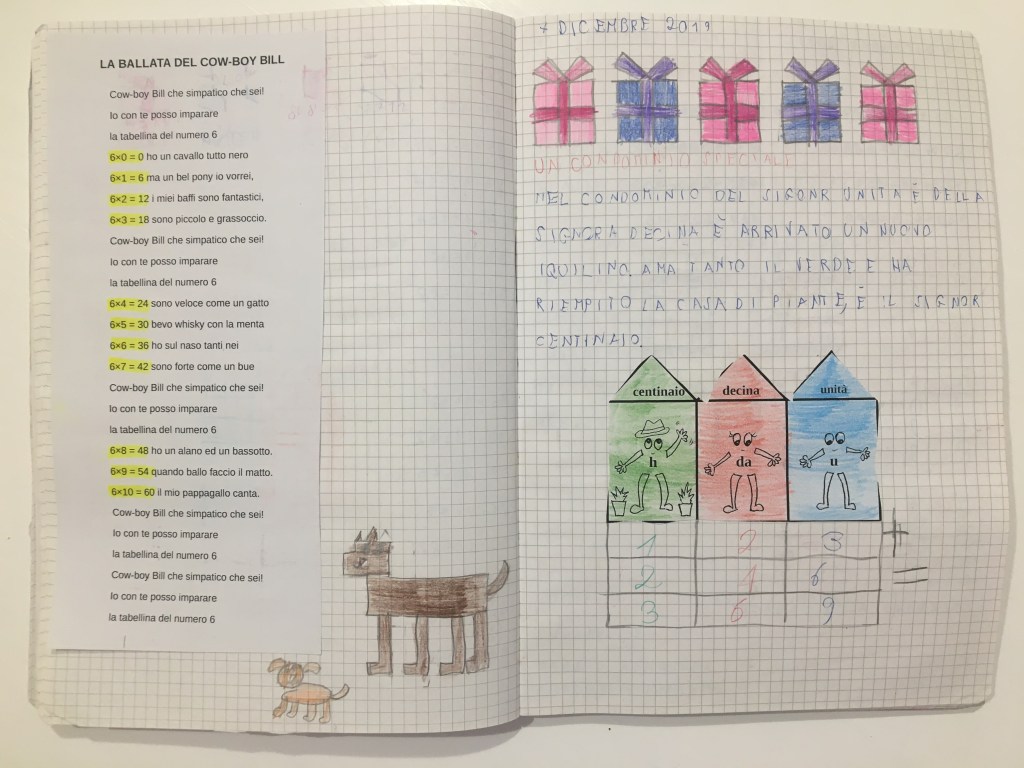 LA BALLATA DEL COW-BOY BILL
Cow-boy Bill che simpatico che sei!
Io con te posso imparare
la tabellina del numero 6
6×0 = 0 ho un cavallo tutto nero
6×1 = 6 ma un bel pony io vorrei,
6×2 = 12 i miei baffi sono fantastici,
6×3 = 18 sono piccolo e grassoccio.
Cow-boy Bill che simpatico che sei!
Io con te posso imparare
la tabellina del numero 6
6×4 = 24 sono veloce come un gatto
6×5 = 30 bevo whisky con la menta
6×6 = 36 ho sul naso tanti nei
6×7 = 42 sono forte come un bue
Cow-boy Bill che simpatico che sei!
Io con te posso imparare
la tabellina del numero 6
6×8 = 48 ho un alano ed un bassotto.
6×9 = 54 quando ballo faccio il matto.
6×10 = 60 il mio pappagallo canta.
Cow-boy Bill che simpatico che sei!
Io con te posso imparare
la tabellina del numero 6
Cow-boy Bill che simpatico che sei!
Io con te posso imparare
la tabellina del numero 6
7 DICEMBRE 2019
UN CONDOMINIO SPECIALE
NEL CONDOMINIO DEL SIGONR UNITÀ E DELLA
SIGNORA DECINA È ARRIVATO UN NUOVO
IQUILINO. AMA TANTO IL VERDE E HA
RIEMPITO LA CASA DI PIANTE, È IL SIGNOR
CENTINAIO.
centinaio decina unità
h da u
1 2 3 +
2 4 6 =
3 6 9